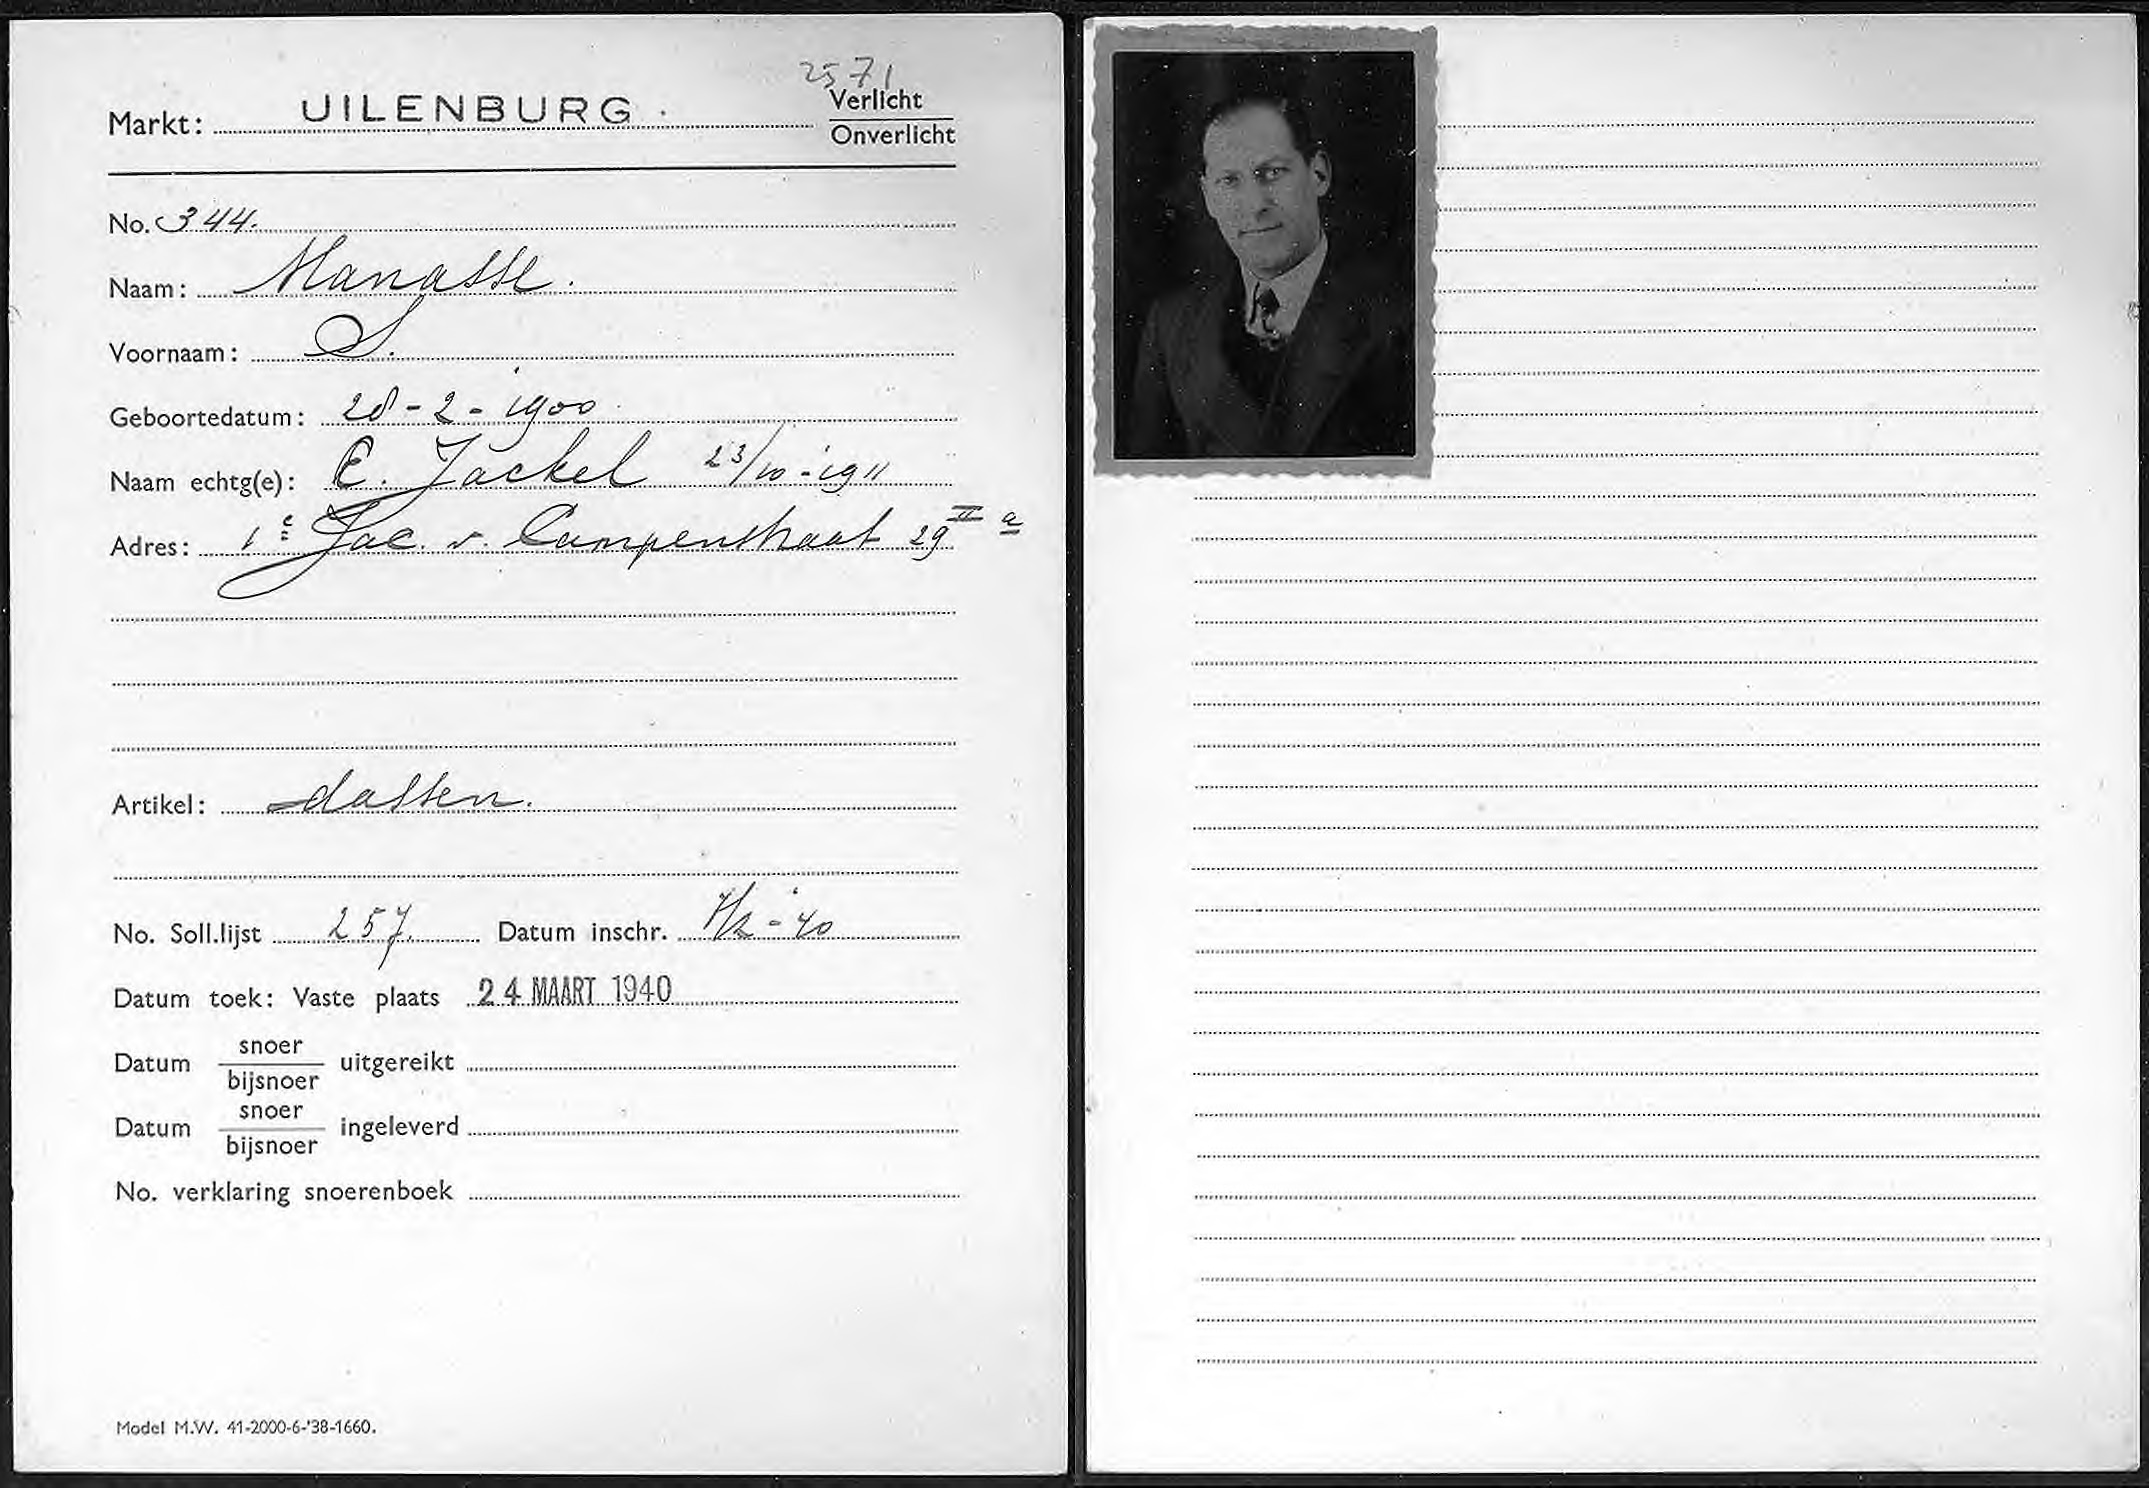 2571
Markt: UILENBURG. Verlicht
Onverlicht
No. 344.
Naam: Manasse.
Voornaam: S.
Geboortedatum: 28-2-1900
Naam echtg(e): E. Jackel 23/10-1911
Adres: 1e Jac. v. Campenstraat 29 II a
Artikel: dassen.
No. Soll.lijst 257. Datum inschr. 7/2-'40
Datum toek: Vaste plaats 24 MAART 1940
Datum snoer
bijsnoer uitgereikt
Datum snoer
bijsnoer ingeleverd
No. verklaring snoerenboek
Model M.W. 41-2000-6-'38-1660.